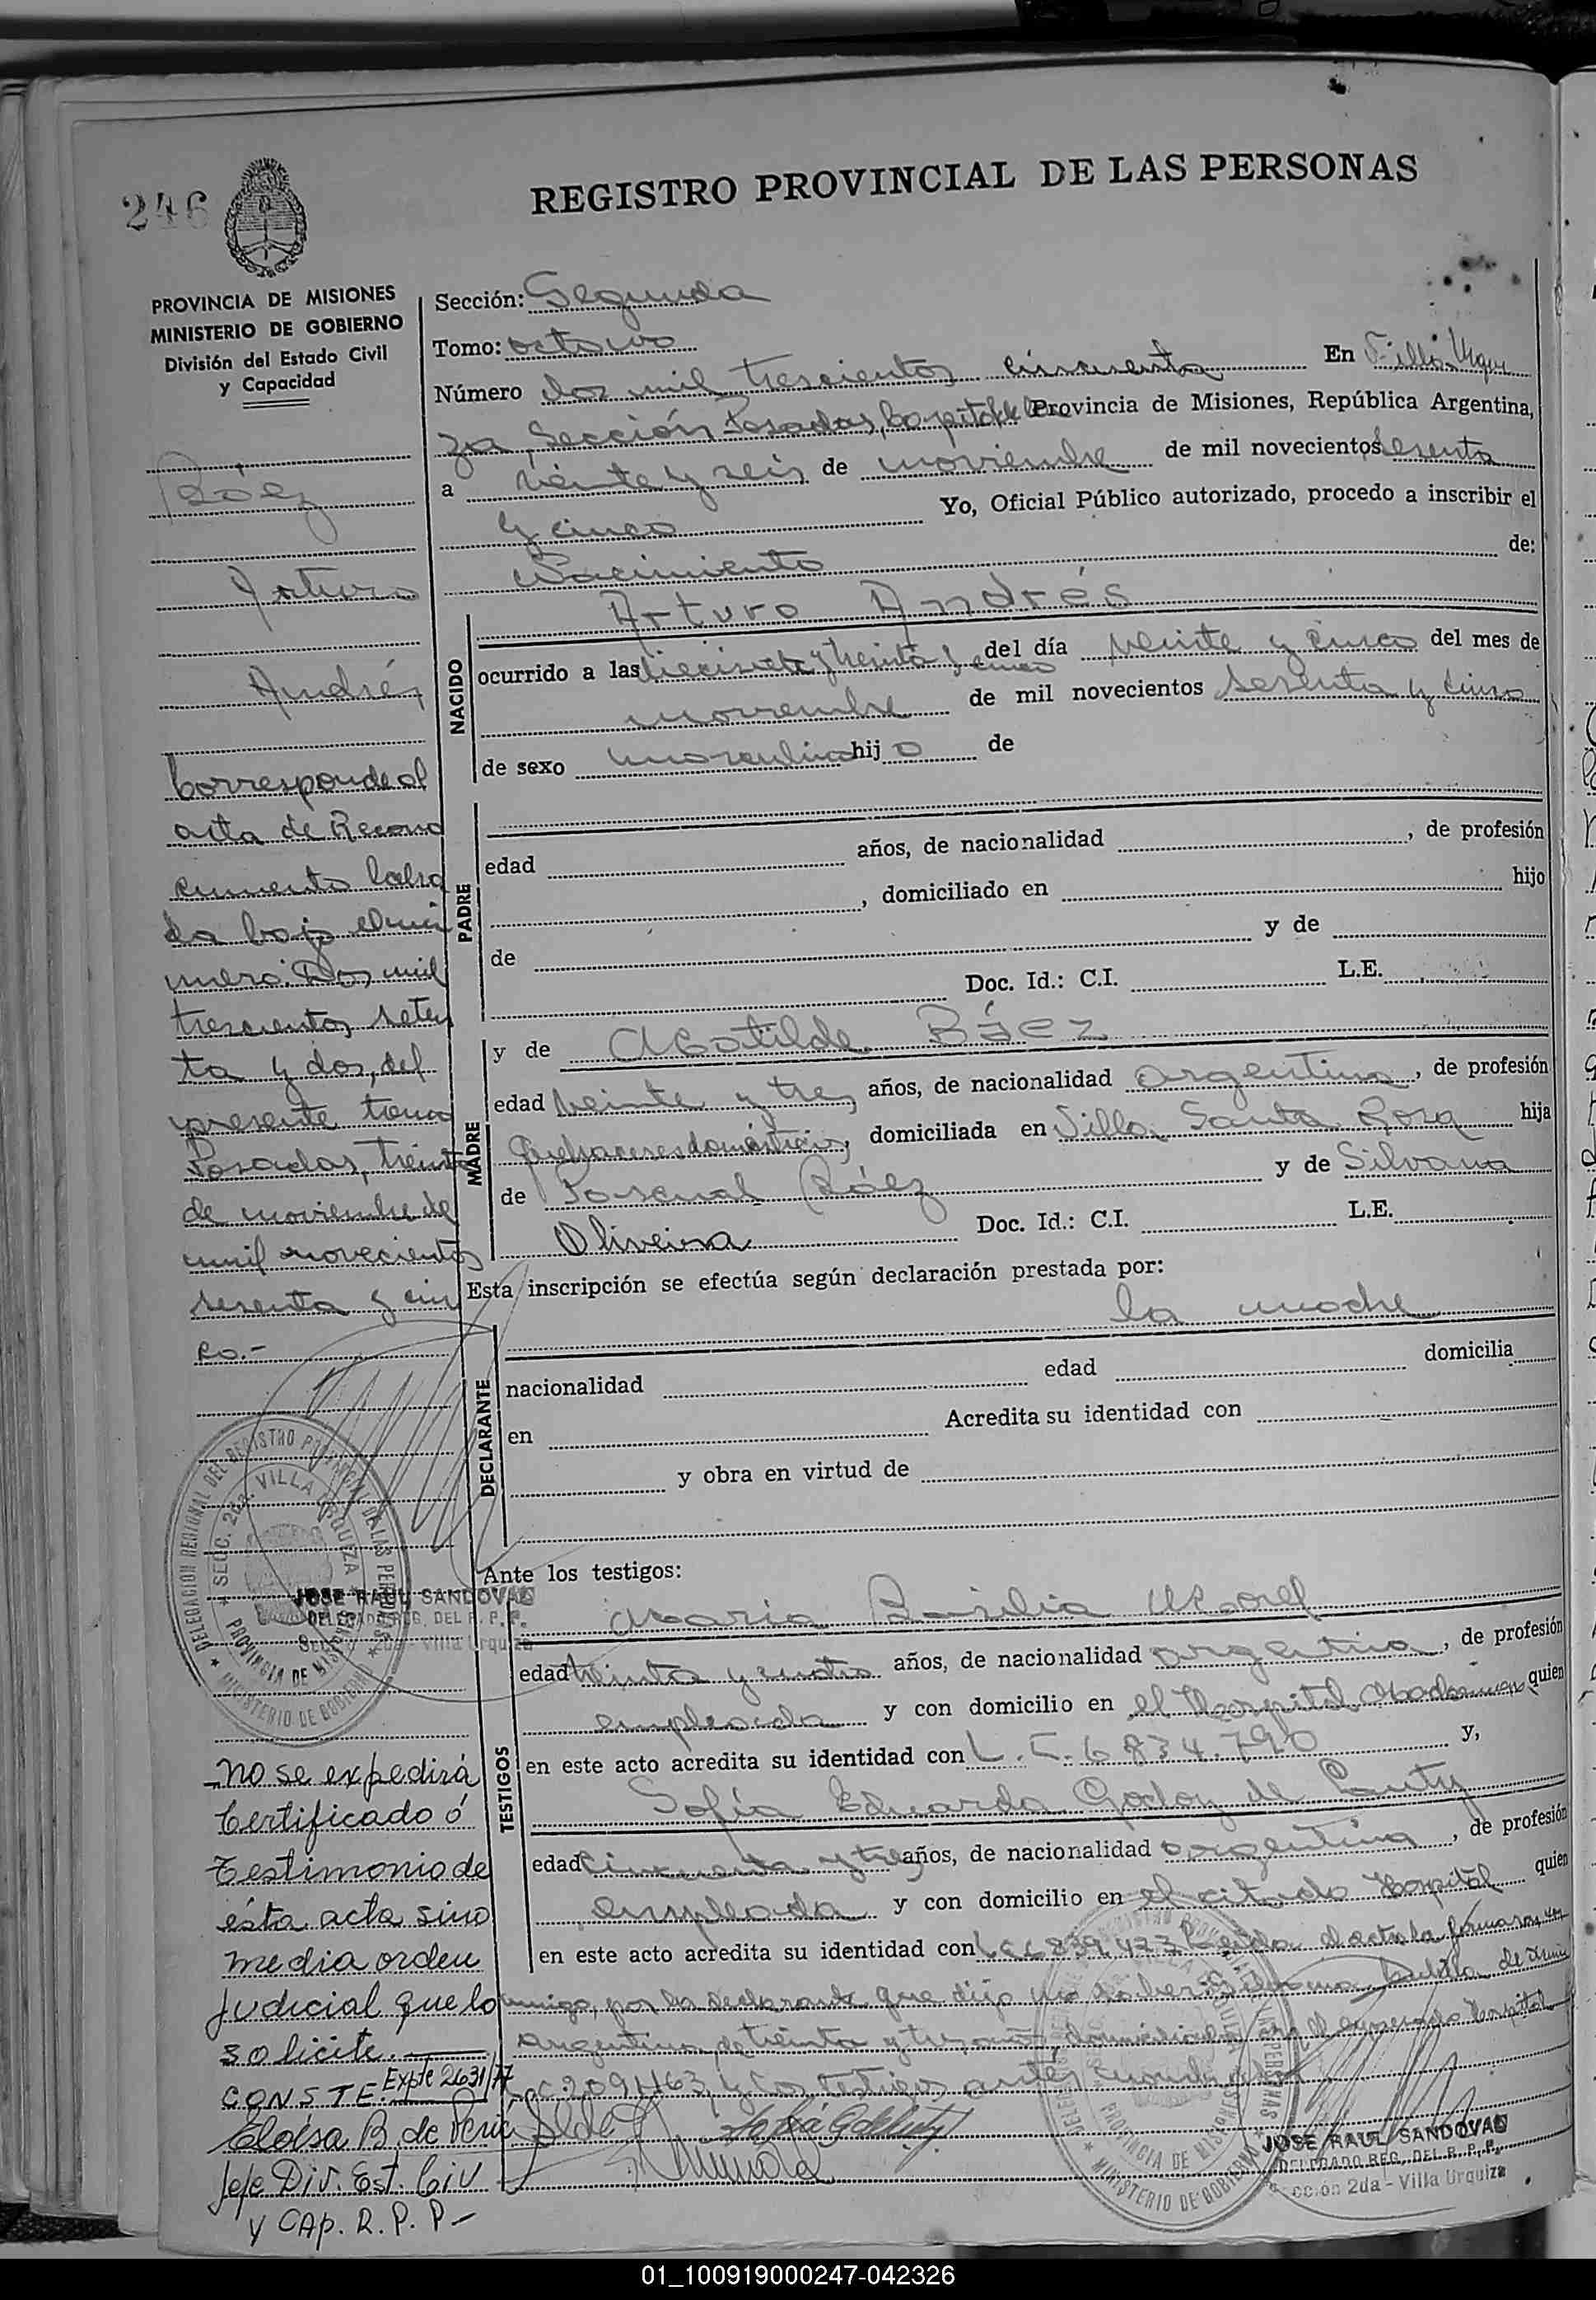 246
REGISTRO PROVINCIAL DE LAS PERSONAS
PROVINCIA DE MISIONES
MINISTERIO DE GOBIERNO
División del Estado Civil
y Capacidad
Báez
Arturo
Andrés
Corresponde al
acta de Recono
cimiento labra
da bajo el nú
mero: Dos mil
trescientos seten
ta y dos, del
presente tomo
Posadas, treinta
de noviembre de
mil novecientos
sesenta y cin
co.-
DELEGACION REGIONAL DEL REGISTRO PROVINCIAL DE LAS PERSONAS
SECC. 2da. VILLA URQUIZA
PROVINCIA DE MISIONES
MINISTERIO DE GOBIERNO
JOSE RAUL SANDOVAL
DELEGADO REG. DEL R. P. P.
Sección 2da - Villa Urquiza
-No se expedirá
Certificado ó
Testimonio de
ésta acta sino
media orden
Judicial que lo
solicite.
CONSTE. Expte 2631/77
Eloísa B. de
Jefe Div. Est. Civ
y CAp. R. P. P-
Sección: Segunda
Tomo: octavo
Número dos mil trescientos cincuenta En Villa Urqui
za, Sección Posadas, Capital de la Provincia de Misiones, República Argentina,
a veinte y seis de noviembre de mil novecientos sesenta
y cinco Yo, Oficial Público autorizado, procedo a inscribir el
Nacimiento de:
NACIDO
Arturo Andrés
ocurrido a las diecisiete y treinta y cinco del día veinte y cinco del mes de
noviembre de mil novecientos sesenta y cinco
de sexo masculino hijo de
PADRE
edad años, de nacionalidad , de profesión
, domiciliado en hijo
de y de
Doc. Id.: C.I. L.E.
MADRE
y de Clotilde Báez
edad veinte y tres años, de nacionalidad argentina, de profesión
Quehaceres domésticos, domiciliada en Villa Santa Rosa hija
de Pascual Báez y de Silvana
Oliveira Doc. Id.: C.I. L.E.
Esta inscripción se efectúa según declaración prestada por:
la madre
DECLARANTE
nacionalidad edad domicilia
en Acredita su identidad con
y obra en virtud de
Ante los testigos:
TESTIGOS
María Basilia Morel
edad treinta y cuatro años, de nacionalidad argentina, de profesión
empleada y con domicilio en el Hospital quien
en este acto acredita su identidad con L.C. 6834.790 y,
Sofía Eduarda Godoy de
edad cincuenta y tres años, de nacionalidad argentina, de profesión
empleada y con domicilio en el citado Hospital quien
en este acto acredita su identidad con Leída el acta la firmaron
conmigo, por la declarante que dijo no saber de
argentina, de treinta y tres años, domiciliada en el expresado Hospital
y los testigos antes
DELEGACION REGIONAL DEL REGISTRO PROVINCIAL DE LAS PERSONAS
SECC. 2da. VILLA URQUIZA
PROVINCIA DE MISIONES
MINISTERIO DE GOBIERNO
JOSE RAUL SANDOVAL
DELEGADO REG. DEL R. P. P.
Sección 2da - Villa Urquiza
01_100919000247-042326